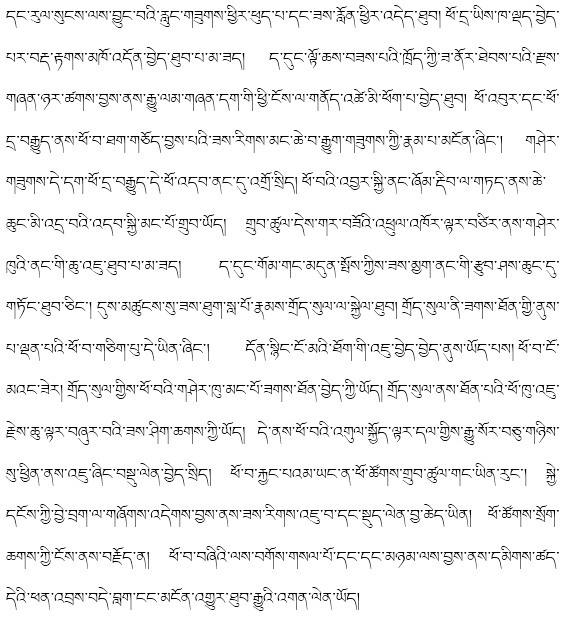 དང་རུལ་སུངས་ལས་བྱུང་བའི་རླུང་གཟུགས་ཕྱིར་ཕུད་པ་དང་ཟས་རློན་ཕྱིར་འདེད་ཐུབ། ཕོ་དྲ་ཡིས་ཁ་ལྡད་བྱེད་
པར་བརྡ་རྟགས་མཁོ་འདོན་བྱེད་ཐུབ་པ་མ་ཟད། ད་དུང་ལྟོ་ཆས་བཟས་པའི་ཁྲོད་ཀྱི་ཟ་ནོར་ཐེབས་པའི་རྫས་
གཞན་ཉར་ཚགས་བྱས་ནས་རྒྱུ་ལམ་གཞན་དག་གི་ཕྱི་ངོས་ལ་གནོད་འཚེ་མི་ཕོག་པ་བྱེད་ཐུབ། ཕོ་འབུར་དང་ཕོ་
དྲ་བརྒྱུད་ནས་ཕོ་བ་ཐག་གཅོད་བྱས་པའི་ཟས་རིགས་མང་ཆེ་བ་རྒྱུག་གཟུགས་ཀྱི་རྣམ་པ་མངོན་ཞིང་། གཤེར་
གཟུགས་དེ་དག་ཕོ་དྲ་བརྒྱུད་དེ་ཕོ་འདབ་ནང་དུ་འགྲོ་སྲིད། ཕོ་བའི་འབྱར་སྐྱི་ནང་ཞོམ་རྡིབ་ལ་གཏད་ནས་ཆེ་
ཆུང་མི་འདྲ་བའི་འདབ་སྐྱི་མང་པོ་གྲུབ་ཡོད། གྲུབ་ཚུལ་དེས་གར་བཟོའི་འཕྲུལ་འཁོར་ལྟར་བཙིར་ནས་གཤེར་
ཁུའི་ནང་གི་ཆུ་འཇུ་ཐུབ་པ་མ་ཟད། ད་དུང་གོམ་གང་མདུན་སྤོས་ཀྱིས་ཟས་མྱག་ནང་གི་རྩུབ་ཤས་ཆུང་དུ་
གཏོང་ཐུབ་ཅིང་། དུས་མཚུངས་སུ་ཟས་ཐུག་སླ་པོ་རྣམས་གྲོད་སུལ་ལ་སྐྱེལ་ཐུབ། གྲོད་སུལ་ནི་ཟགས་ཐོན་གྱི་ནུས་
པ་ལྡན་པའི་ཕོ་བ་གཅིག་པུ་དེ་ཡིན་ཞིང་། དོན་སྙིང་ངོ་མའི་ཐོག་གི་འཇུ་བྱེད་བྱེད་ནུས་ཡོད་པས། ཕོ་བ་ངོ་
མའང་ཟེར། གྲོད་སུལ་གྱིས་ཕོ་བའི་གཤེར་ཁུ་མང་པོ་ཟགས་ཐོན་བྱེད་ཀྱི་ཡོད། གྲོད་སུལ་ནས་ཐོན་པའི་ཕོ་ཁུ་འཇུ་
རྫེས་ཆུ་ལྟར་བཞུར་བའི་ཟས་ཤིག་ཆགས་ཀྱི་ཡོད། དེ་ནས་ཕོ་བའི་འགུལ་སྐྱོད་ལྟར་དལ་གྱིས་རྒྱུ་སོར་བཅུ་གཉིས་
སུ་ཕྱིན་ནས་འཇུ་ཞིང་བསྡུ་ལེན་བྱེད་སྲིད། ཕོ་བ་རྐྱང་པའམ་ཡང་ན་ཕོ་ཚོགས་གྲུབ་ཚུལ་གང་ཡིན་རུང་། སྐྱེ་
དངོས་ཀྱི་བྱེ་བྲག་ལ་གཞོགས་འདེགས་བྱས་ནས་ཟས་རིགས་འཇུ་བ་དང་སྡུད་ལེན་བྱ་ཆེད་ཡིན། ཕོ་ཚོགས་སྲོག་
ཆགས་ཀྱི་ངོས་ནས་བརྗོད་ན། ཕོ་བ་བཞིའི་ལས་བགོས་གསལ་པོ་དང་དང་མཉམ་ལས་བྱས་ནས་དམིགས་ཚད་
དེའི་ཕན་འབྲས་བདེ་བླག་ངང་མངོན་འགྱུར་ཐུབ་རྒྱུའི་འགན་ལེན་ཡོད།